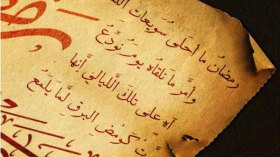 رمضانُ ما أحلى سويعات
وأمرّ ما نلقاه يوم نودّعُ
آه على تلك الليالي إنّها
كومض البرق لمّا يلمعُ